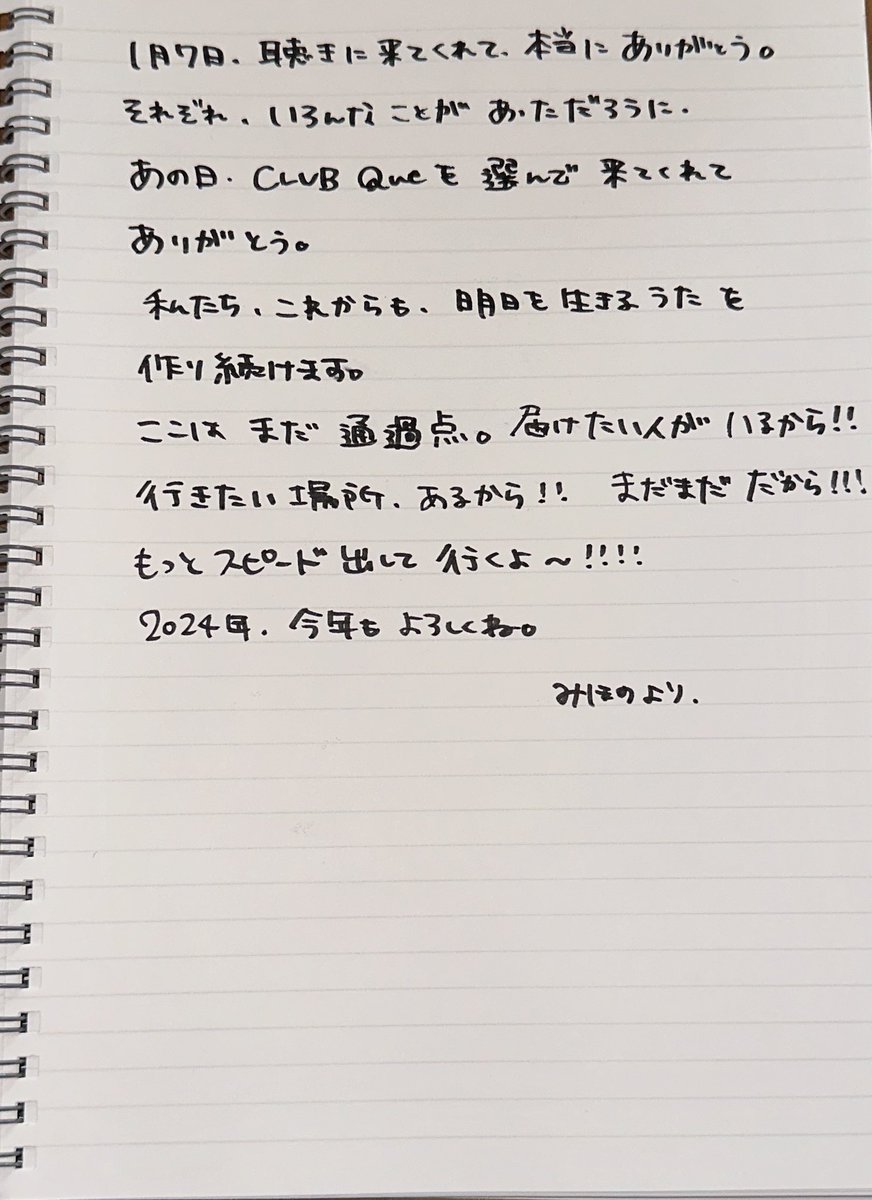 1月7日、聴きに来てくれて、本当にありがとう。
それぞれ、いろんなことがあっただろうに、
あの日、CLUB Queを選んで来てくれて
ありがとう。
私たち、これからも、明日を生きるうたを
作り続けます。
ここはまだ通過点。届けたい人がいるから!!
行きたい場所、あるから!! まだまだだから!!!
もっとスピード出して行くよ〜!!!!
2024年、今年もよろしくね。
みほのより.